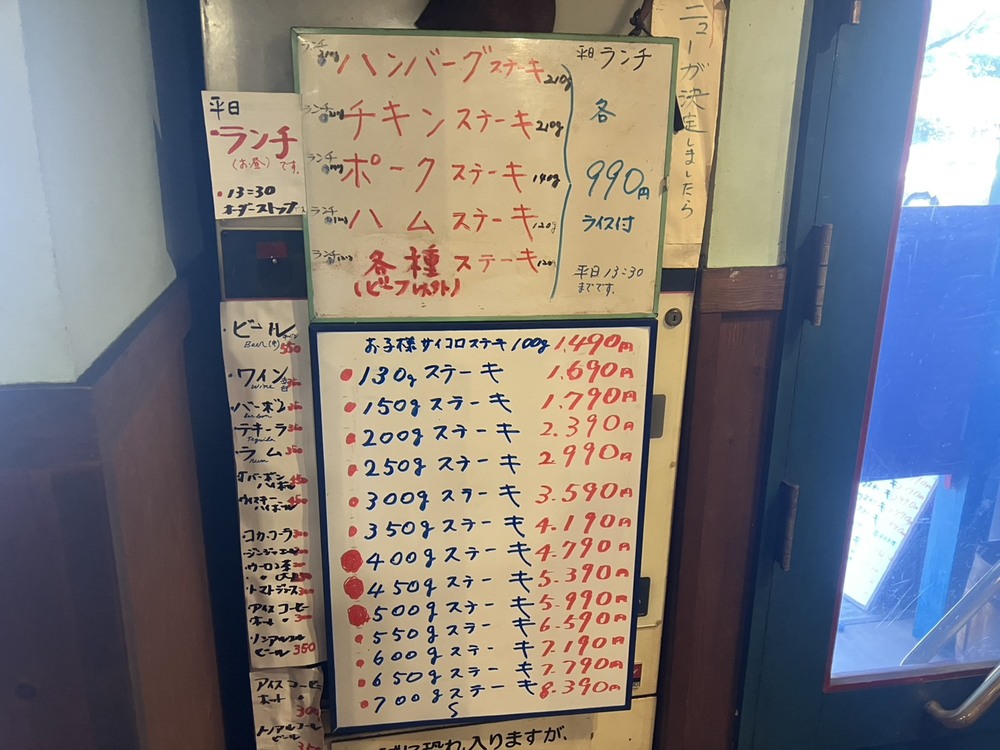 ニューが決定しましたら
平日
・ランチ
(お昼)です。
・13:30
オーダーストップ
ランチ ハンバーグステーキ 210g
ランチ チキンステーキ 210g
ランチ ポークステーキ 140g
ランチ ハムステーキ 120g
ランチ 各種ステーキ
平日ランチ
各
990円
ライス付
平日13:30
までです。
お子様サイコロステーキ 100g 1.490円
・130gステーキ 1.690円
・150gステーキ 1.790円
・200gステーキ 2.390円
・250gステーキ 2.990円
・300gステーキ 3.590円
・350gステーキ 4.190円
・400gステーキ 4.790円
・450gステーキ 5.390円
・500gステーキ 5.990円
・550gステーキ 6.590円
・600gステーキ 7.190円
・650gステーキ 7.790円
・700gステーキ 8.390円
・ビール
Beer
550
・ワイン
wine
・テキーラ
Tequila
・ラム
Rum
ハイボール
・コカ・コーラ
・ウーロン茶
・トマトジュース
アイスコーヒー
ホット
・ノンアルコール
ビール 350
アイスコーヒー
ホット
・ノンアルコール
ビール
恐れ入りますが、